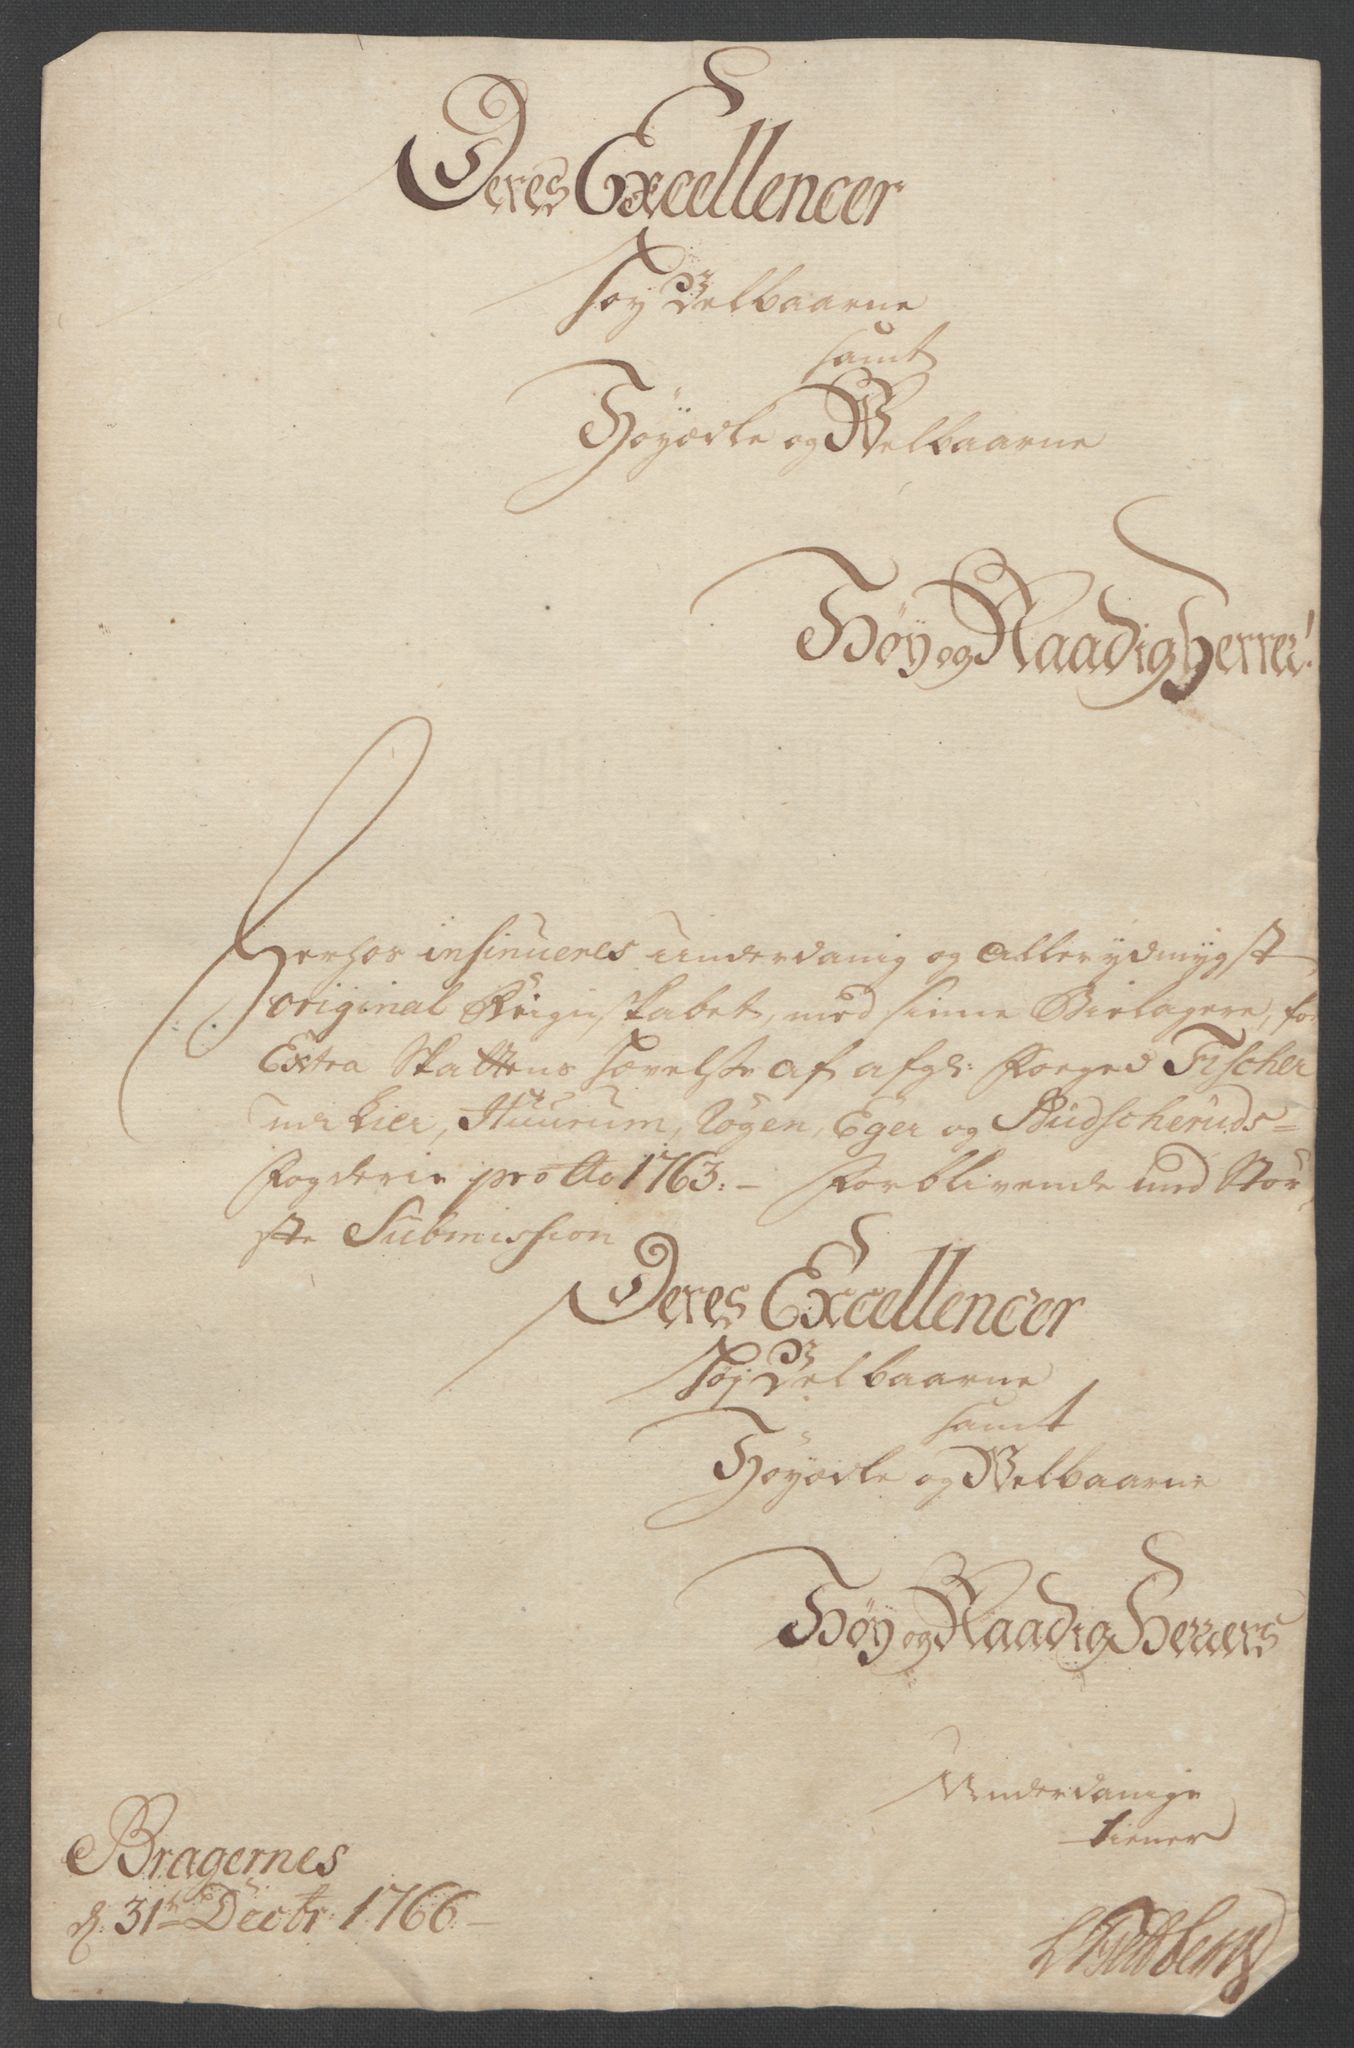 Deres Excellencer
Høy Velbaarne
samt
Høyædle og Velbaarne
Høy og Naadig Herrer!
Herhos insinueres underdanig og allerydmygst
original Reignskabet, med sinne Bielagere, for
Extra Skattens Hævelse af afgl: Foeged Fischer
under Lier, Huurum, Røgen, Eger og Budscheruds=
Fogderie pro Ao 1763. – Forblivende med Stör
ste Submission
Deres Excellencer
Høy Velbaarne
samt
Høyædle og Velbaarne
Høy og Naadig Herrers
Underdanige
tiener
Bragernes
d. 31te Decbr 1766 –